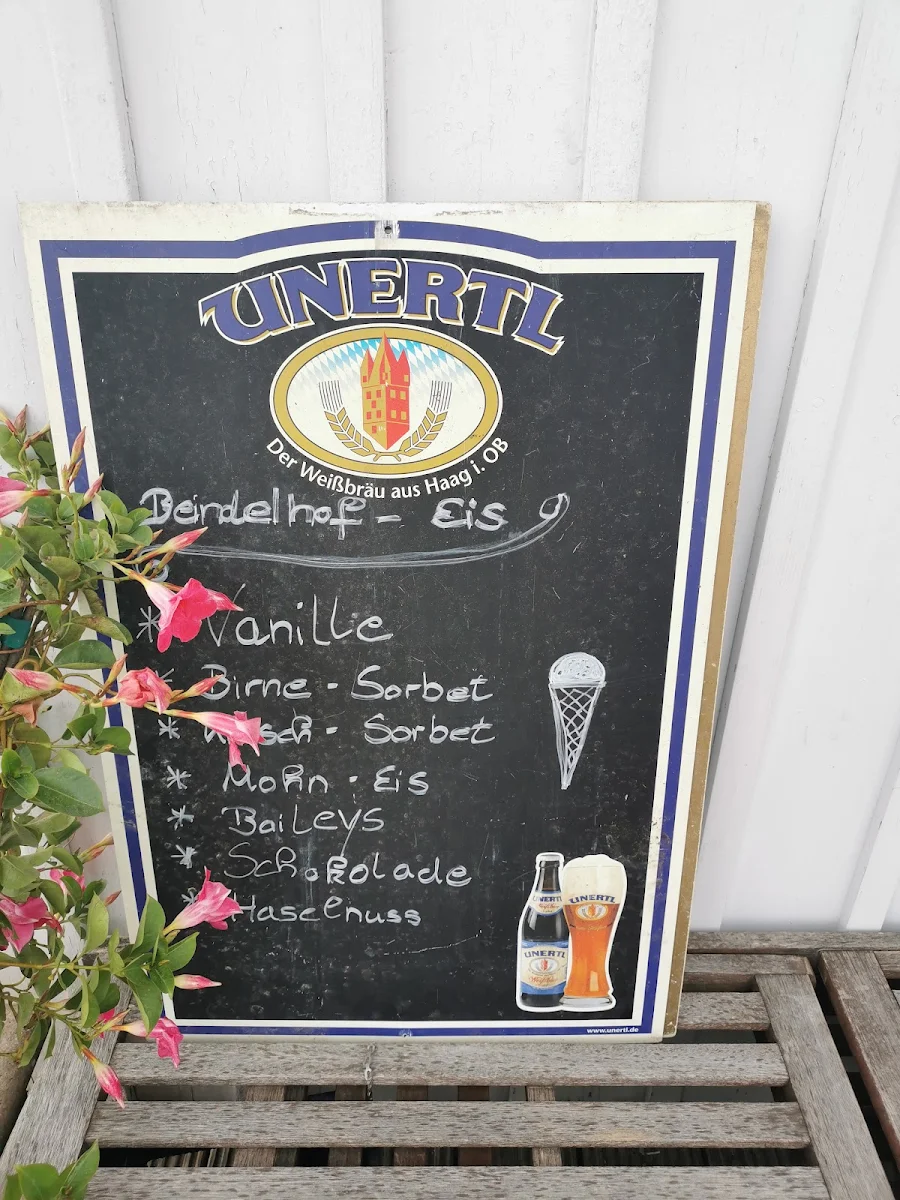 UNERTL
Der Weißbräu aus Haag i. OB
Deindelhof - Eis
* Vanille
* Birne - Sorbet
* - Sorbet
* Mohn - Eis
* Baileys
* Schokolade
* Haselnuss
UNERTL
UNERTL
UNERTL
www.unertl.de